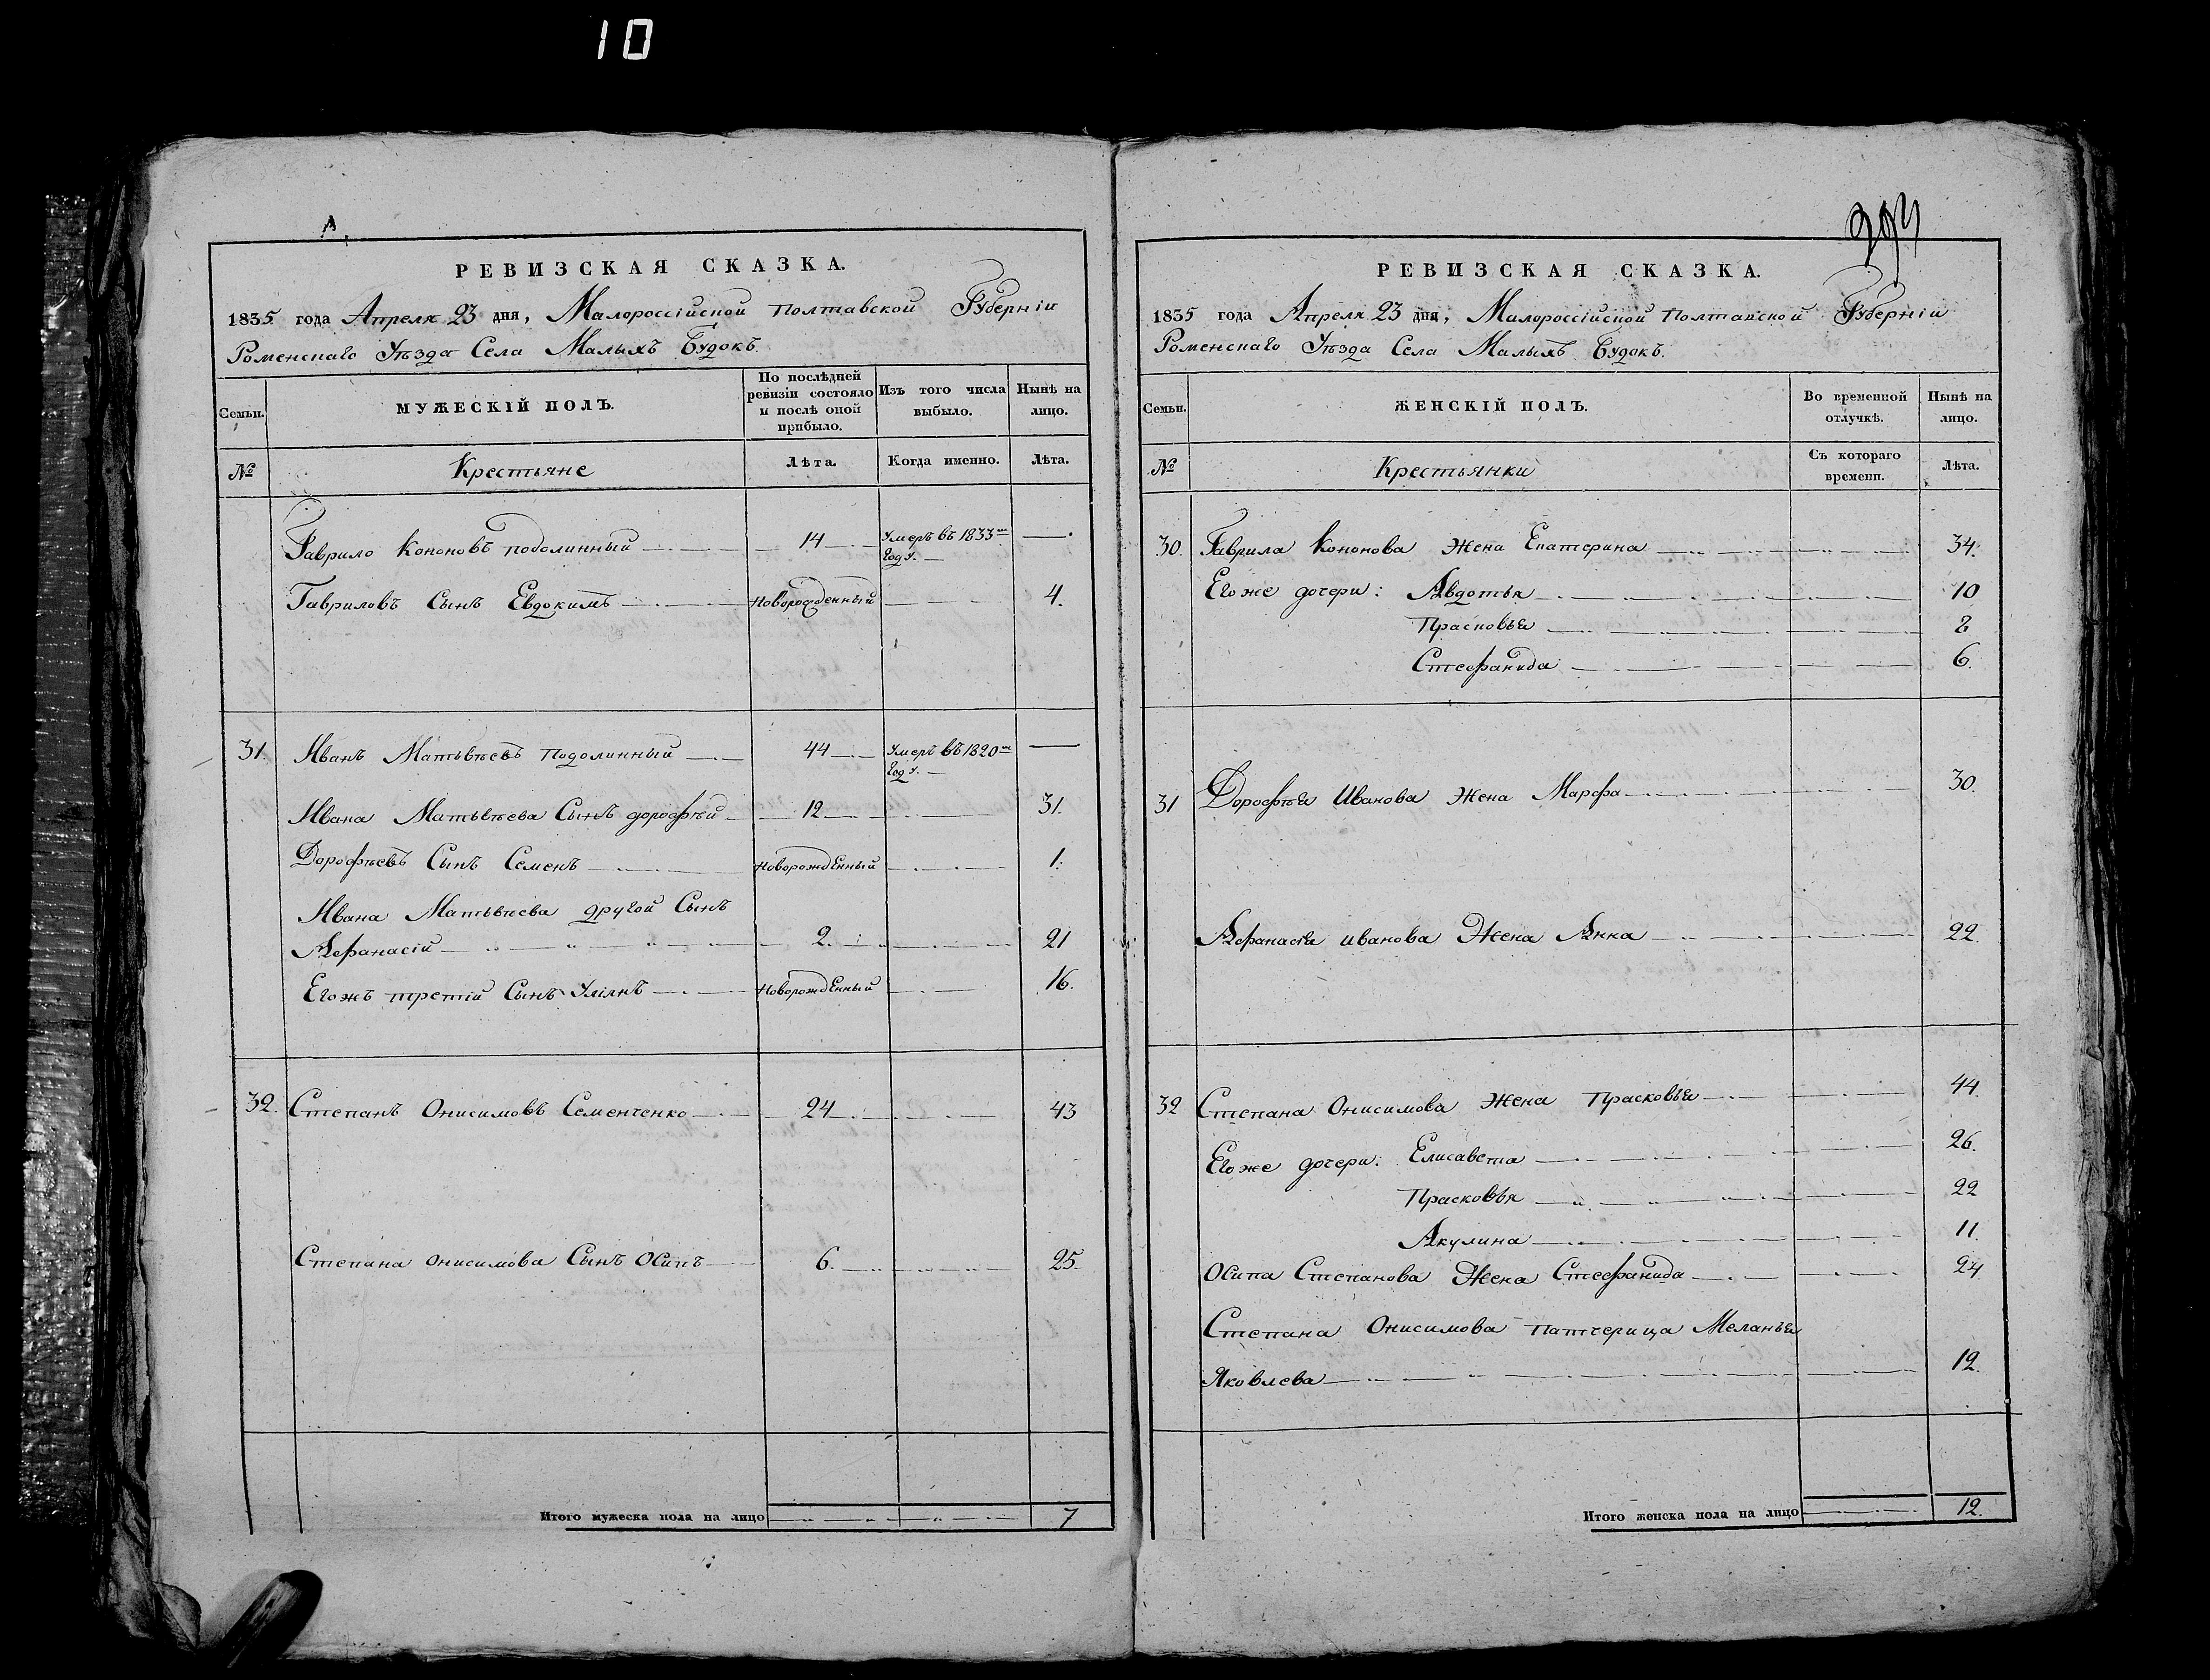 10
РЕВИЗСКАЯ СКАЗКА.
1835 года Апреля 23 дня, Малороссійской Полтавской Губерніи
Роменскаго Уѣзда Села Малыхъ Будокъ.
Семьи.
МУЖЕСКІЙ ПОЛЪ.
По послѣдней ревизіи состояло и послѣ оной прибыло.
Изъ того числа выбыло.
Нынѣ на лицо.
№
Крестьяне
Лѣта.
Когда именно.
Лѣта.
Гаврило Кононовъ Подолинный 14 Умеръ въ 1833 м
Году.
Гавриловъ Сынъ Евдокимъ Новорожденный 4.
31. Иванъ Матвѣевъ Подолинный 44 Умеръ въ 1820 м
Году.
Ивана Матвѣева Сынъ дорофѣй 12 31.
Дорофѣевъ Сынъ Семенъ Новорожденный 1.
Ивана Матвѣева другой Сынъ
Афанасій 2. 21
Егожъ третій Сынъ Новорожденный 16.
32. Степанъ Онисимовъ Семенченко 24 43
Степана Онисимова Сынъ Осипъ 6. 25.
Итого мужеска пола на лицо 7
РЕВИЗСКАЯ СКАЗКА.
1835 года Апреля 23 дня, Малороссійской Полтавской Губерніи
Роменскаго Уѣзда Села Малыхъ Будокъ.
Семьи.
ЖЕНСКІЙ ПОЛЪ.
Во временной отлучкѣ.
Нынѣ на лицо.
№
Крестьянки
Съ котораго времени.
Лѣта.
30. Гаврила Кононова Жена Екатерина 34.
Егоже дочери: Авдотья 10
Прасковья 8
Стефанида 6.
31 Дорофѣя Иванова Жена Марфа 30.
Афанасія иванова Жена Анна 22.
32 Степана Онисимова Жена Прасковья 44.
Егоже дочери: Елисавета 26.
Прасковья 22
Акулина 11.
Осипа Степанова Жена Стефанида 24
Степана Онисимова патчерица Меланья
Яковлева 12.
Итого женска пола на лицо 12.